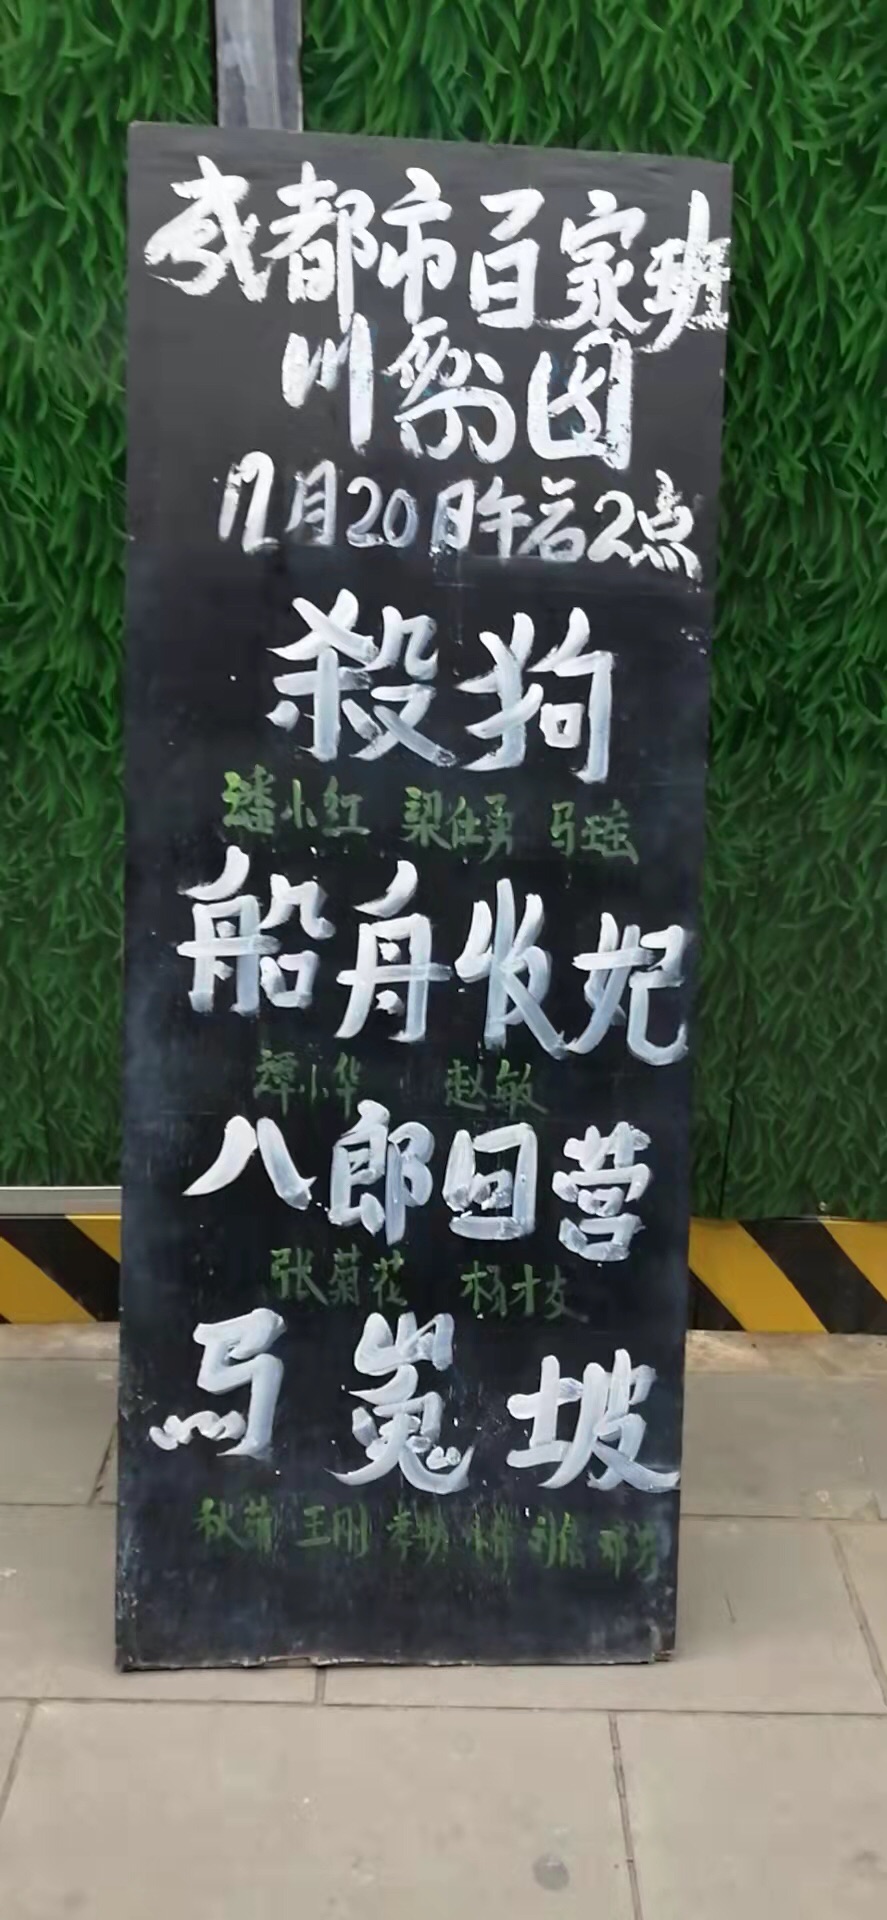 成都市百家班
川剧团
12月20日午后2点
殺狗
潘小红 梁仕勇 马瑶
船舟收妃
谭小华 赵敏
八郎回营
张菊花 杨才友
马嵬坡
王刚